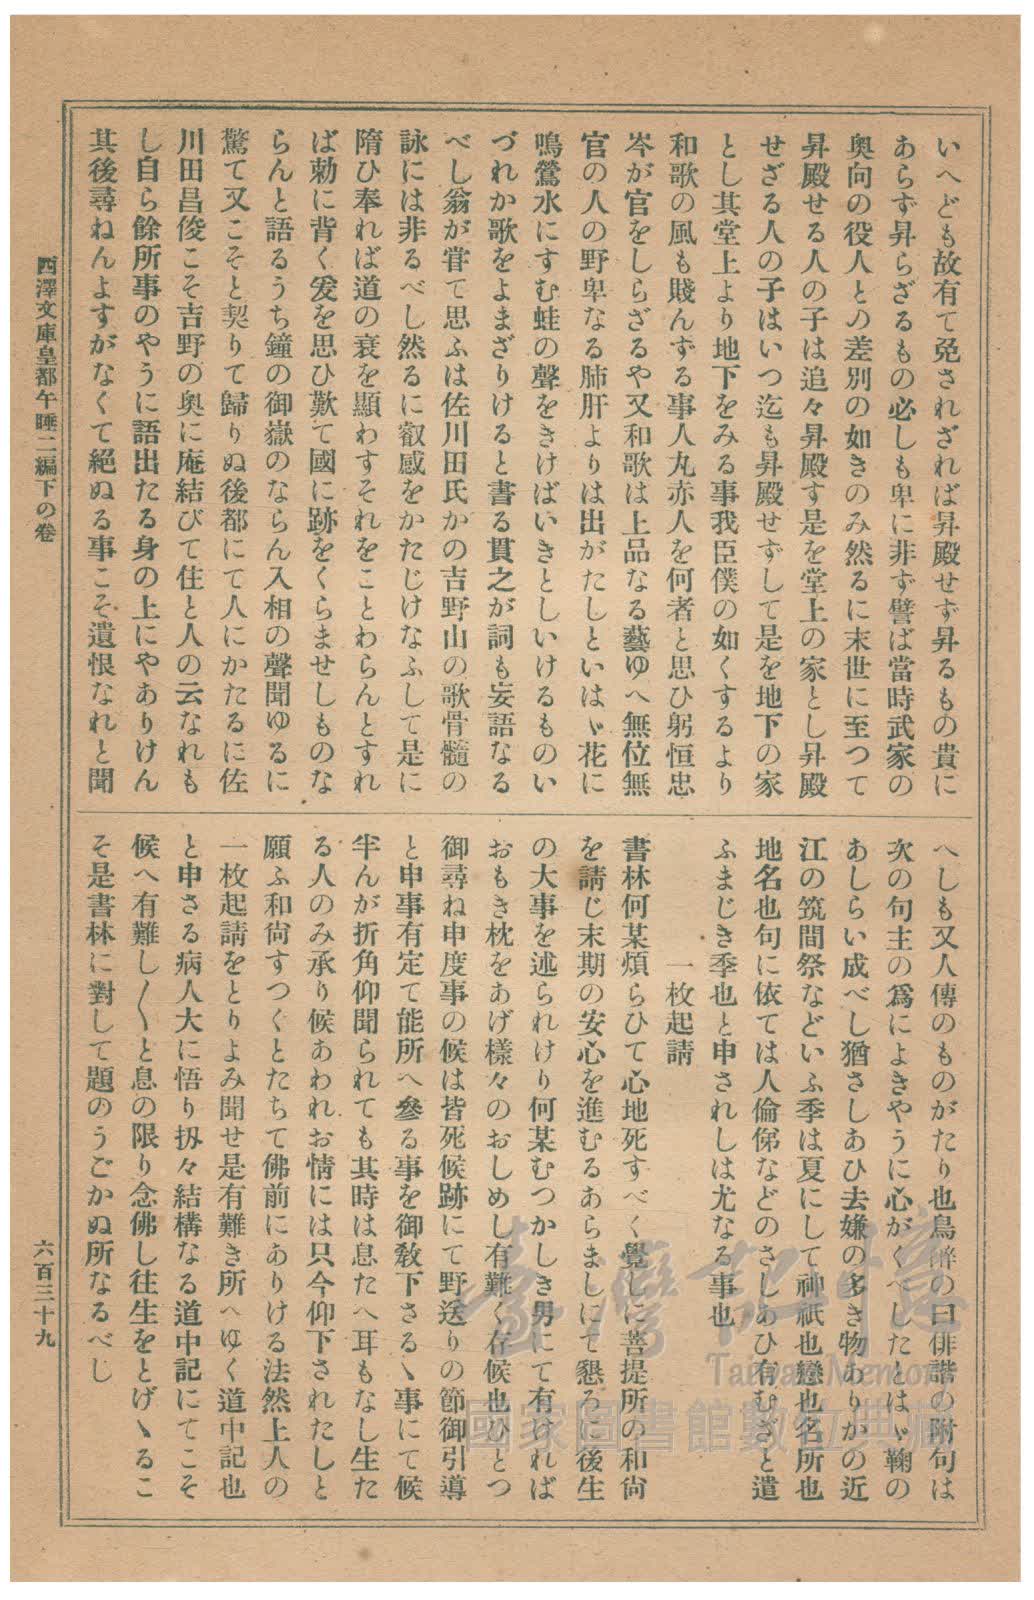 いへども故有て免されざれば昇殿せず昇るもの貴に
あらず昇らざるもの必しも卑に非ず譬ば當時武家の
奥向の役人との差別の如きのみ然るに末世に至つて
昇殿せる人の子は追々昇殿す是を堂上の家とし昇殿
せざる人の子はいつ迄も昇殿せずして是を地下の家
とし其堂上より地下をみる事我臣僕の如くするより
和歌の風も賤んずる事人丸赤人を何者と思ひ躬恒忠
岑が官をしらざるや又和歌は上品なる藝ゆへ無位無
官の人の野卑なる肺肝よりは出がたしといはゞ花に
鳴鶯水にすむ蛙の聲をきけばいきとしいけるものい
づれか歌をよまざりけると書る貫之が詞も妄語なる
べし翁が甞て思ふは佐川田氏かの吉野山の歌骨髓の
詠には非るべし然るに叡感をかたじけなふして是に
隋ひ奉れば道の衰を顯わすそれをことわらんとすれ
ば勅に背く爰を思ひ歎て國に跡をくらませしものな
らんと語るうち鐘の御嶽のならん入相の聲聞ゆるに
驚て又こそと契りて歸りぬ後都にて人にかたるに佐
川田昌俊こそ吉野の奥に庵結びて住と人の云なれも
し自ら餘所事のやうに語出たる身の上にやありけん
其後尋ねんよすがなくて絶ぬる事こそ遺恨なれと聞
へしも又人傳のものがたり也鳥醉の曰俳諧の附句は
次の句主の爲によきやうに心がくべしたとはゞ鞠の
あしらい成べし猶さしあひ去嫌の多き物ありかの近
江の筑間祭などいふ季は夏にして神祇也戀也名所也
地名也句に依ては人倫俤などのさしあひ有むざと遣
ふまじき季也と申されしは尤なる事也
一枚起請
書林何某煩らひて心地死すべく覺しに菩提所の和尙
を請じ末期の安心を進むるあらましにて懇ろに後生
の大事を述られけり何某むつかしき男にて有ければ
おもき枕をあげ樣々のおしめし有難く存候也ひとつ
御尋ね申度事の候は皆死候跡にて野送りの節御引導
と申事有定て能所へ參る事を御敎下さるゝ事にて候
半んが折角仰聞られても其時は息たへ耳もなし生た
る人のみ承り候あわれお情には只今仰下されたしと
願ふ和尙すつくとたちて佛前にありける法然上人の
一枚起請をとりよみ聞せ是有難き所へゆく道中記也
と申さる病人大に悟り扨々結構なる道中記にてこそ
候へ有難し〳〵と息の限り念佛し往生をとげゝるこ
そ是書林に對して題のうごかぬ所なるべし
西澤文庫皇都午睡二編下の卷
六百三十九
臺灣記憶
Taiwan Memory
國家圖書館數位典藏